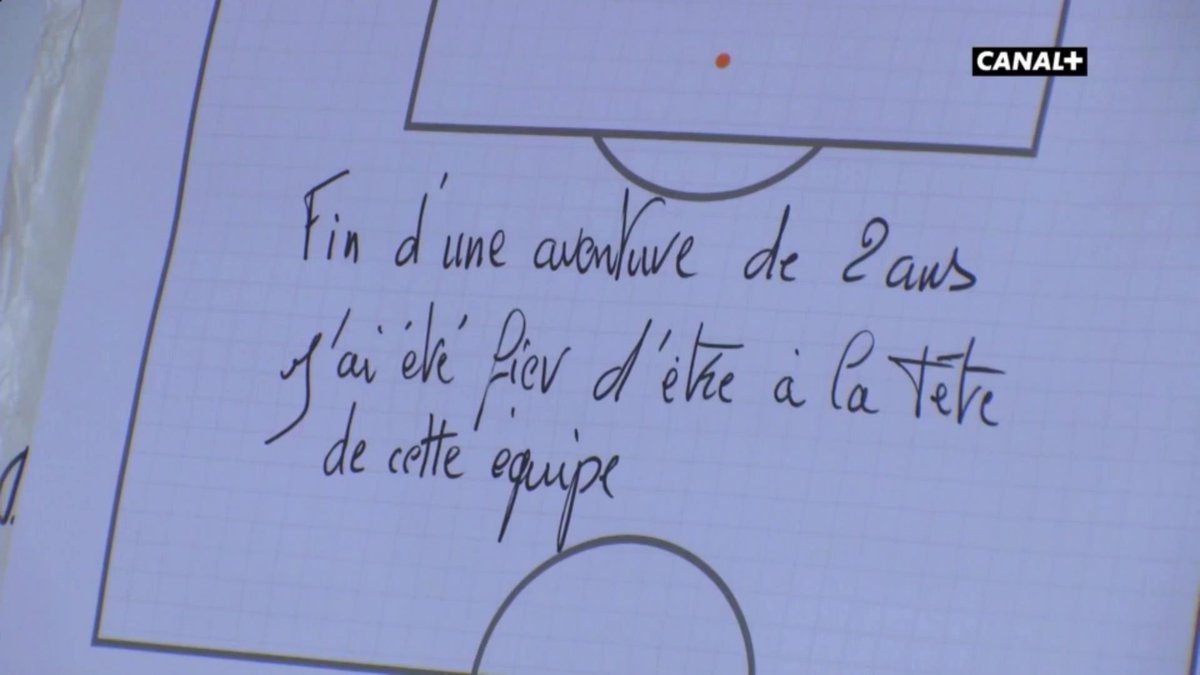 CANAL+
Fin d'une aventure de 2 ans
J'ai été fier d'être à la Tête
de cette équipe